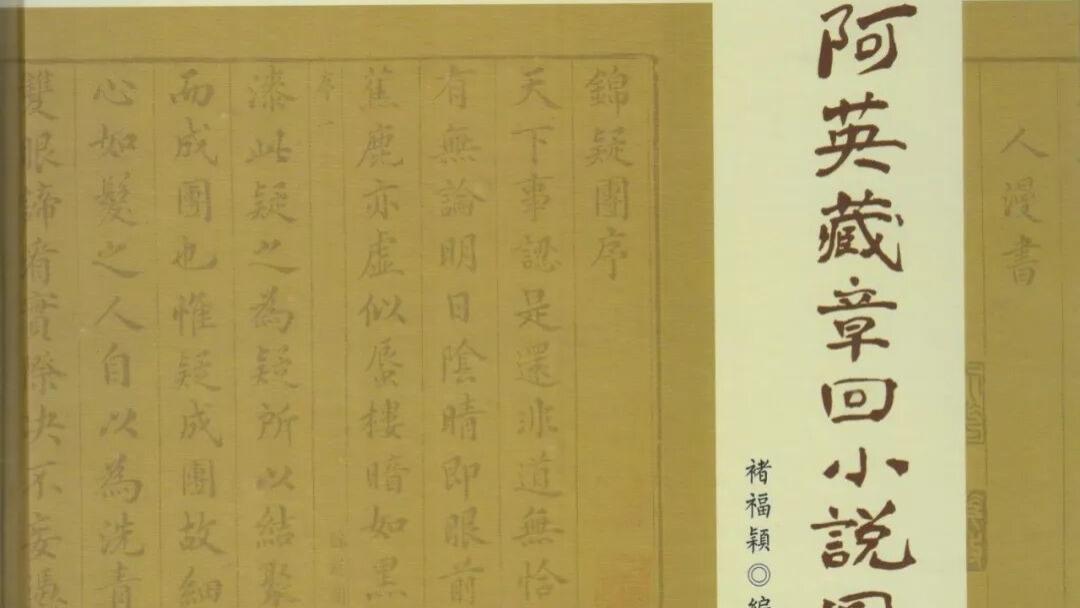 人漫書
阿英藏章回小說
褚福穎◎編
錦疑團序
天下事認是還非道無恰
有無論明日陰晴即眼前
蕉鹿亦虛似蜃樓暗如黑
序一
漆此疑之為疑所以結聚
而成團也惟疑成團故細
心如髮之人自以為洗青
雙眼諦看實際決不妄憑